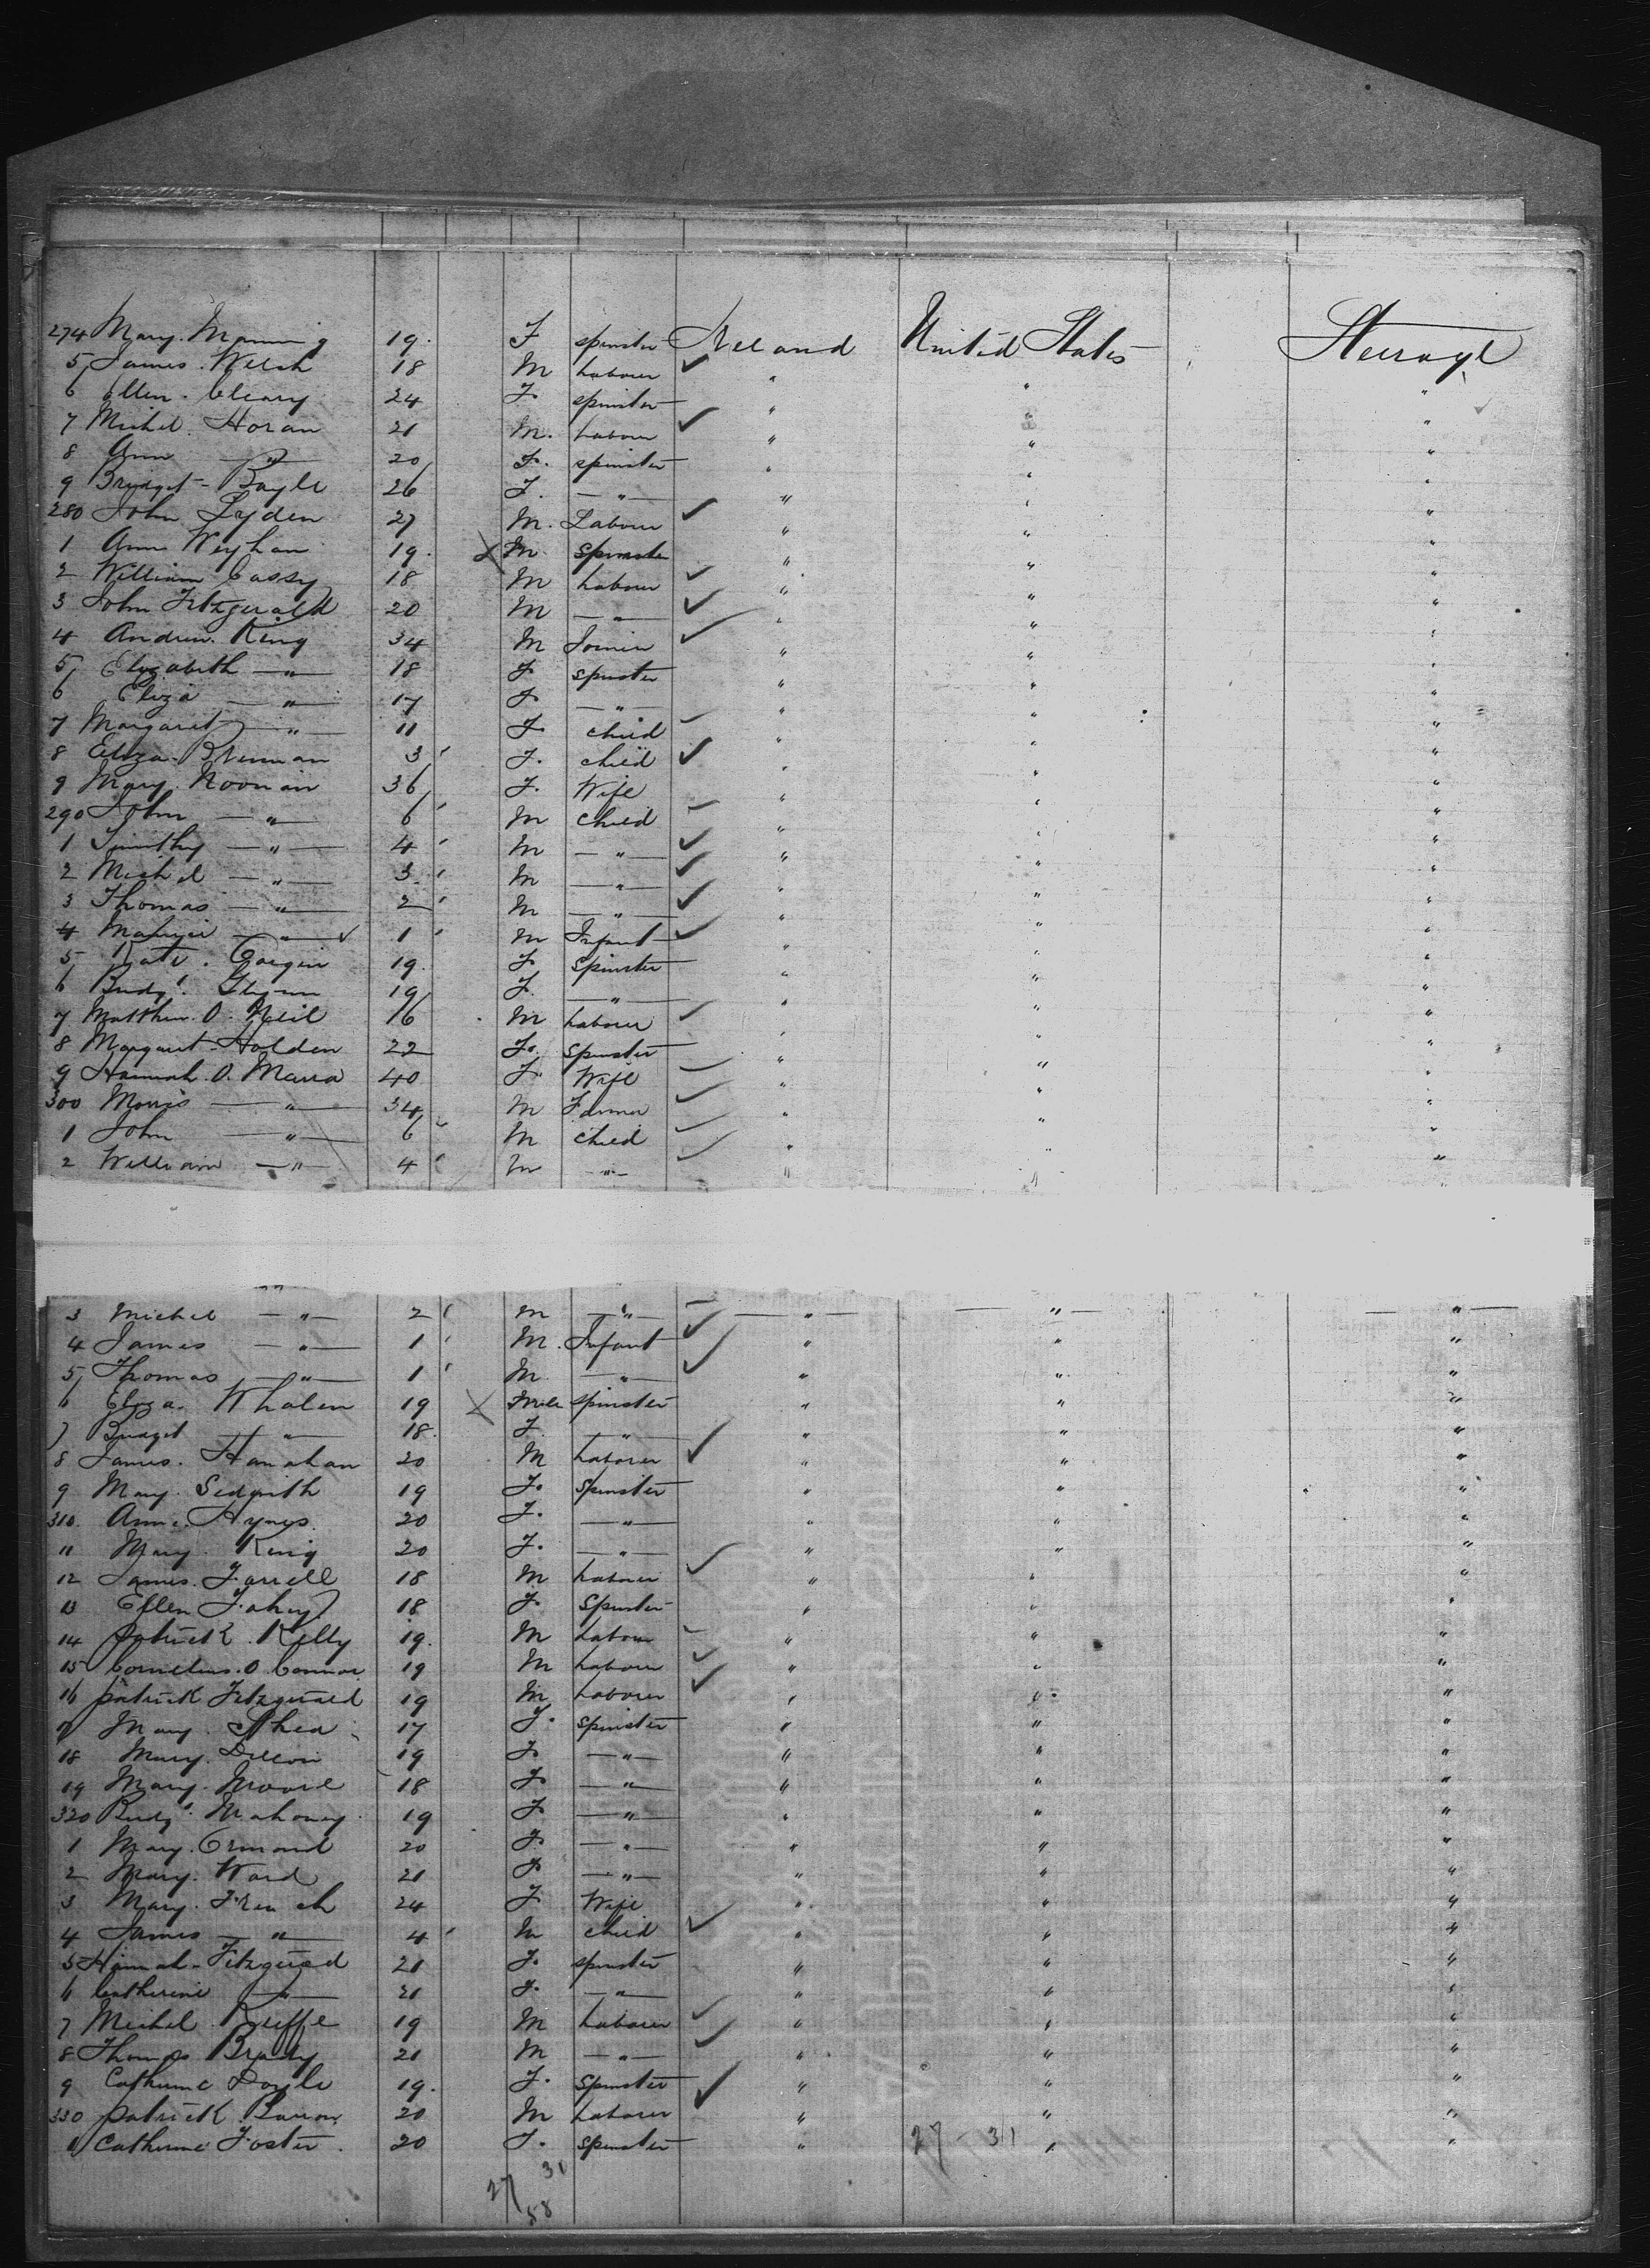 274 Mary. Manning 19. F spinster Ireland United States Steerage
5 James. Welsh 18 M Labourer ✓ " " "
6 Ellen. Cleary 24 F. spinster " " "
7 Michel. Horan 21 M. Labourer ✓ " " "
8 Ann —"— 20 F. spinster " " "
9 Bridget - Boyle 26 F. —"— " " "
280 John Lyden 27 M. Labourer ✓ " " "
1 Ann 19. X M Spinster " " "
2 William Cassy 18 M Labourer ✓ " " "
3 John Fitzgerald 20 M —"— ✓ " " "
4 Andrew. King 34 M Joiner ✓ " " "
5 Elizabeth —"— 18 F spinster " " "
6 Eliza —"— 17 F. —"— " " "
7 Margaret —"— 11 F. child ✓ " " "
8 Eliza. Brennan 3 F. child ✓ " " "
9 Mary. Noonan 36 F. Wife " " "
290 John —"— 6 M child ✓ " " "
1 Timithy —"— 4 M —"— ✓ " " "
2 Michel —"— 3 M —"— ✓ " " "
3 Thomas —"— 2 M —"— ✓ " " "
4 —"— ✓ 1 M Infant ✓ " " "
5 Kate. 19. F Spinster " " "
6 Bridgt. Glynn 19 F. —"— " " "
7 Matthew. O. Neil 16 M Laborer ✓ " " "
8 Margaret - Holden 22 F. Spinster " " "
9 Hannah. O. Marra 40 F. Wife ✓ " " "
300 Morris —"— 34 M Farmer ✓ " " "
1 John —"— 6 M child ✓ " " "
2 William —"— 4 M —"— ✓ " " "
3 Michel —"— 2 M —"— ✓ —"— —"— —"—
4 James —"— 1 M. Infant ✓ " " "
5 Thomas —"— 1 M. —"— ✓ " " "
6 Eliza. Whalen 19 X spinster " " "
7 Bridget —"— 18. F. —"— " " "
8 James. Hanahan 20 M Laborer ✓ " " "
9 Mary. Sedgwith 19 F. Spinster " " "
310. Ann. Hynes. 20 F. —"— " " "
11 Mary. King 20 F. —"— " " "
12 James. Farrell 18 M Laborer ✓ " " "
13 Ellen Fahey 18 F. Spinster " " "
14 Patrick. Kelly 19. M Labour ✓ " " "
15 Cornelius. O. Connor 19 M Laborer ✓ " " "
16 Patrick Fitzgerald 19 M Laborer ✓ " " "
17 Mary. Shea 17 F. spinster " " "
18 Mary. Dillon 19 F. —"— " " "
19 Mary. Moore 18 F. —"— " " "
320 Bridgt. Mahoney 19 F. —"— " " "
1 Mary. Ormond 20 F. —"— " " "
2 Mary. Ward 21 F. —"— " " "
3 Mary. French 24 F. Wife " " "
4 James —"— 4 M child ✓ " " "
5 Hannah - Fitzgerald 21 F. spinster " " "
6 Catherine —"— 21 F. —"— " " "
7 Michel. Keeffe 19 M Laborer ✓ " " "
8 Thomas Brady 21 M —"— ✓ " " "
9 Catherine Doyle 19. F. Spinster " " "
330 Patrick. Barron 20 M Laborer ✓ " " "
1 Catherine Foster. 20 F. Spinster " " "
27 - 31
27/31
58